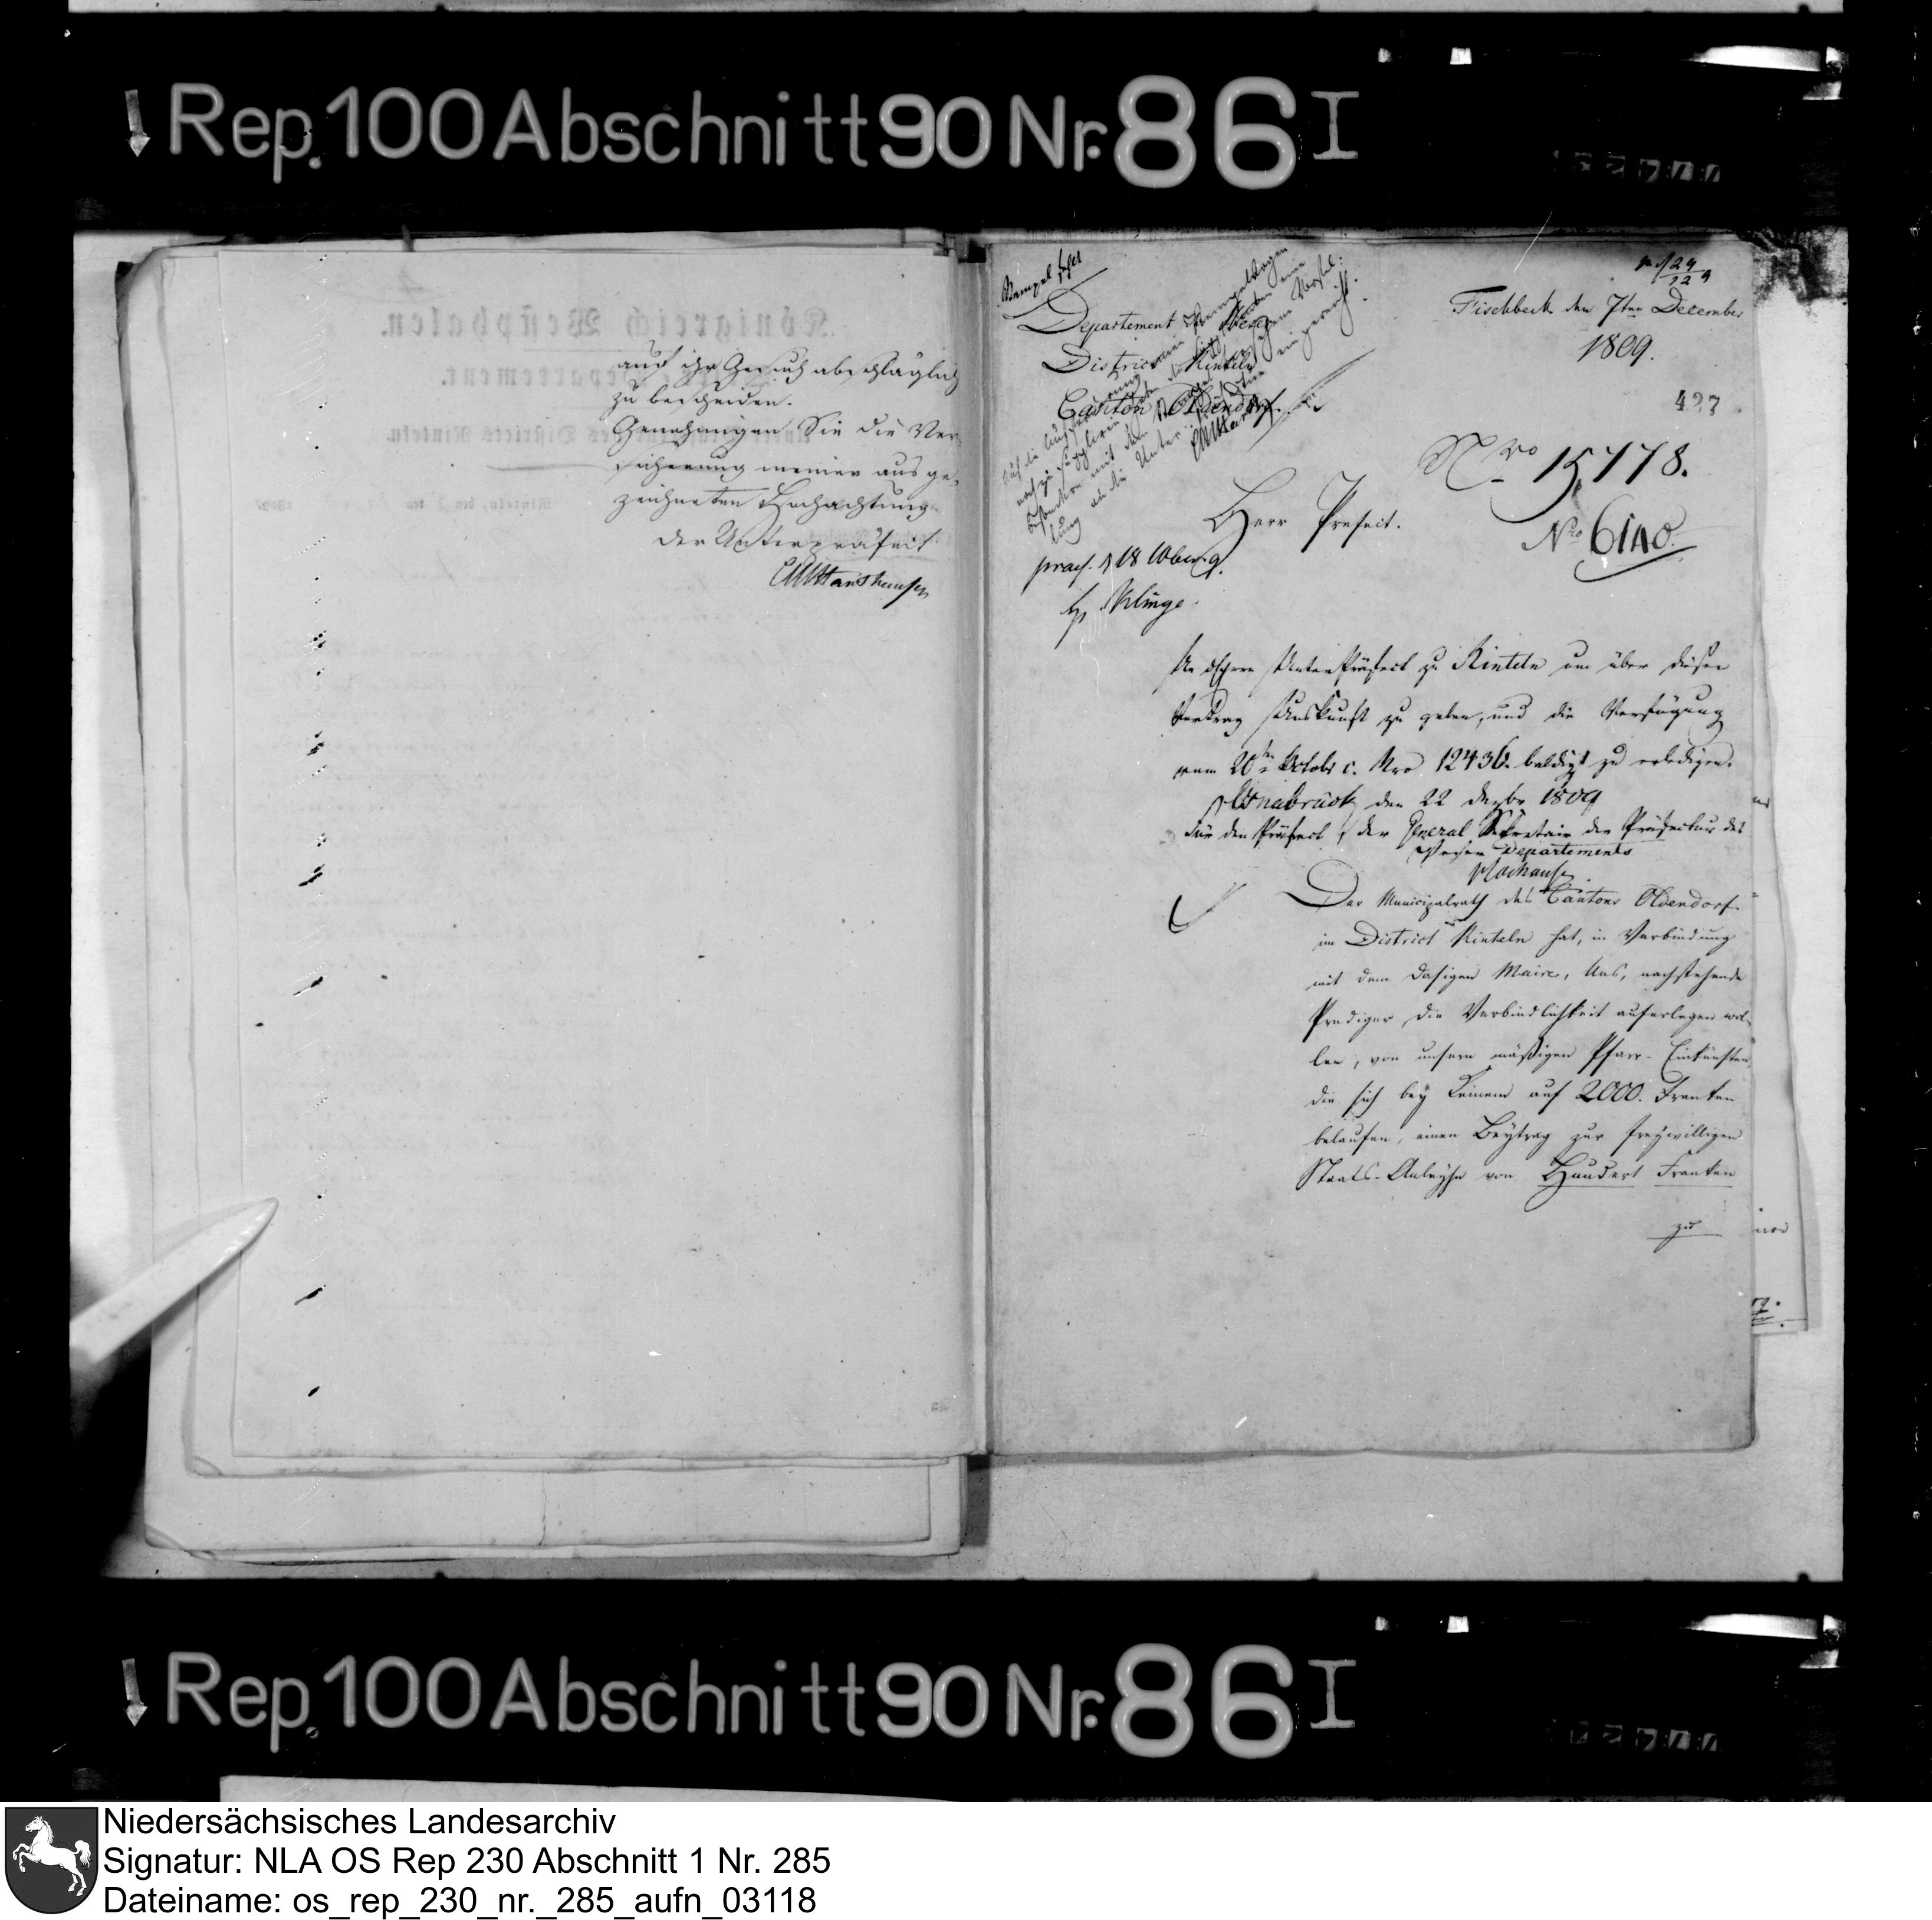 Rep. 100 Abschnitt 90 Nr. 86 I
auf ihr Gesuch abschläglich
zu bescheiden.
Genehmigen Sie die Ver-
sicherung meiner ausge-
zeichneten Hochachtung
Der Unterpräfect
Königreich Westphalen.
Stempel
Departement Weser
District Rinteln
Canton Oldendorf.
Fischbeck den 7ten December
1809.
427
Nro 15,778.
Nro 6140.
Herr Prefect.
praes. 18 10ber 9.
Klinge.
An Herrn Unter Präfect zu Rinteln um über diesen
Vortrag Auskunft zu geben, und die Verfügung
vom 20ten Octobr c. Nro 12436. baldigst zu erledigen.
Osnabrück den 22 Dezbr 1809
Für den Präfect, der General Sekretair der Präfectur des
Weser Departements
Der Municipalrath des Cantons Oldendorf
im District Rinteln hat, in Verbindung
mit dem dasigen Maire, Uns, nachstehende
Prediger die Verbindlichkeit auferlegen wol-
len, von unsern mäßigen Pfarr-Einkünften,
die sich bey Keinem auf 2000. Franken
belaufen, einen Beytrag zur freywilligen
Staats-Anleyhe von Hundert Franken
zu
Rep. 100 Abschnitt 90 Nr. 86 I
Niedersächsisches Landesarchiv
Signatur: NLA OS Rep 230 Abschnitt 1 Nr. 285
Dateiname: os_rep_230_nr._285_aufn_03118